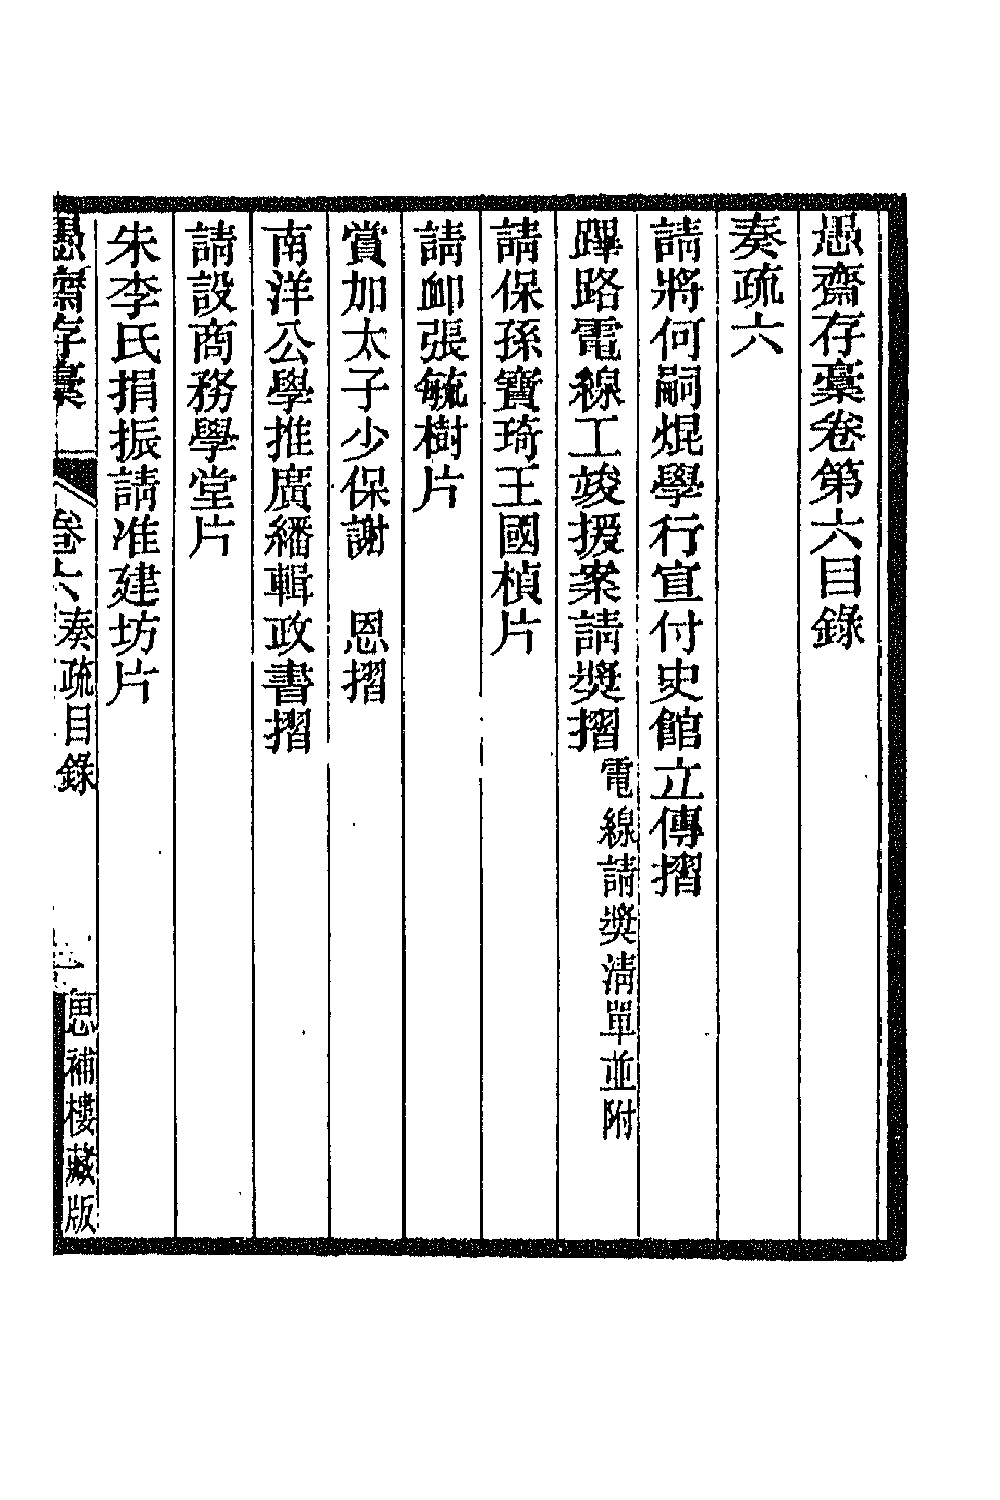 愚齋存稾卷第六目錄
奏疏六
請將何嗣焜學行宣付史館立傳摺
蹕路電線工竣援案請獎摺電線請獎清單並附
請保孫寶琦王國楨片
請卹張毓樹片
賞加太子少保謝　恩摺
南洋公學推廣繙輯政書摺
請設商務學堂片
朱李氏捐振請准建坊片
愚齋存稾　卷六　奏疏目錄　一　思補樓藏版